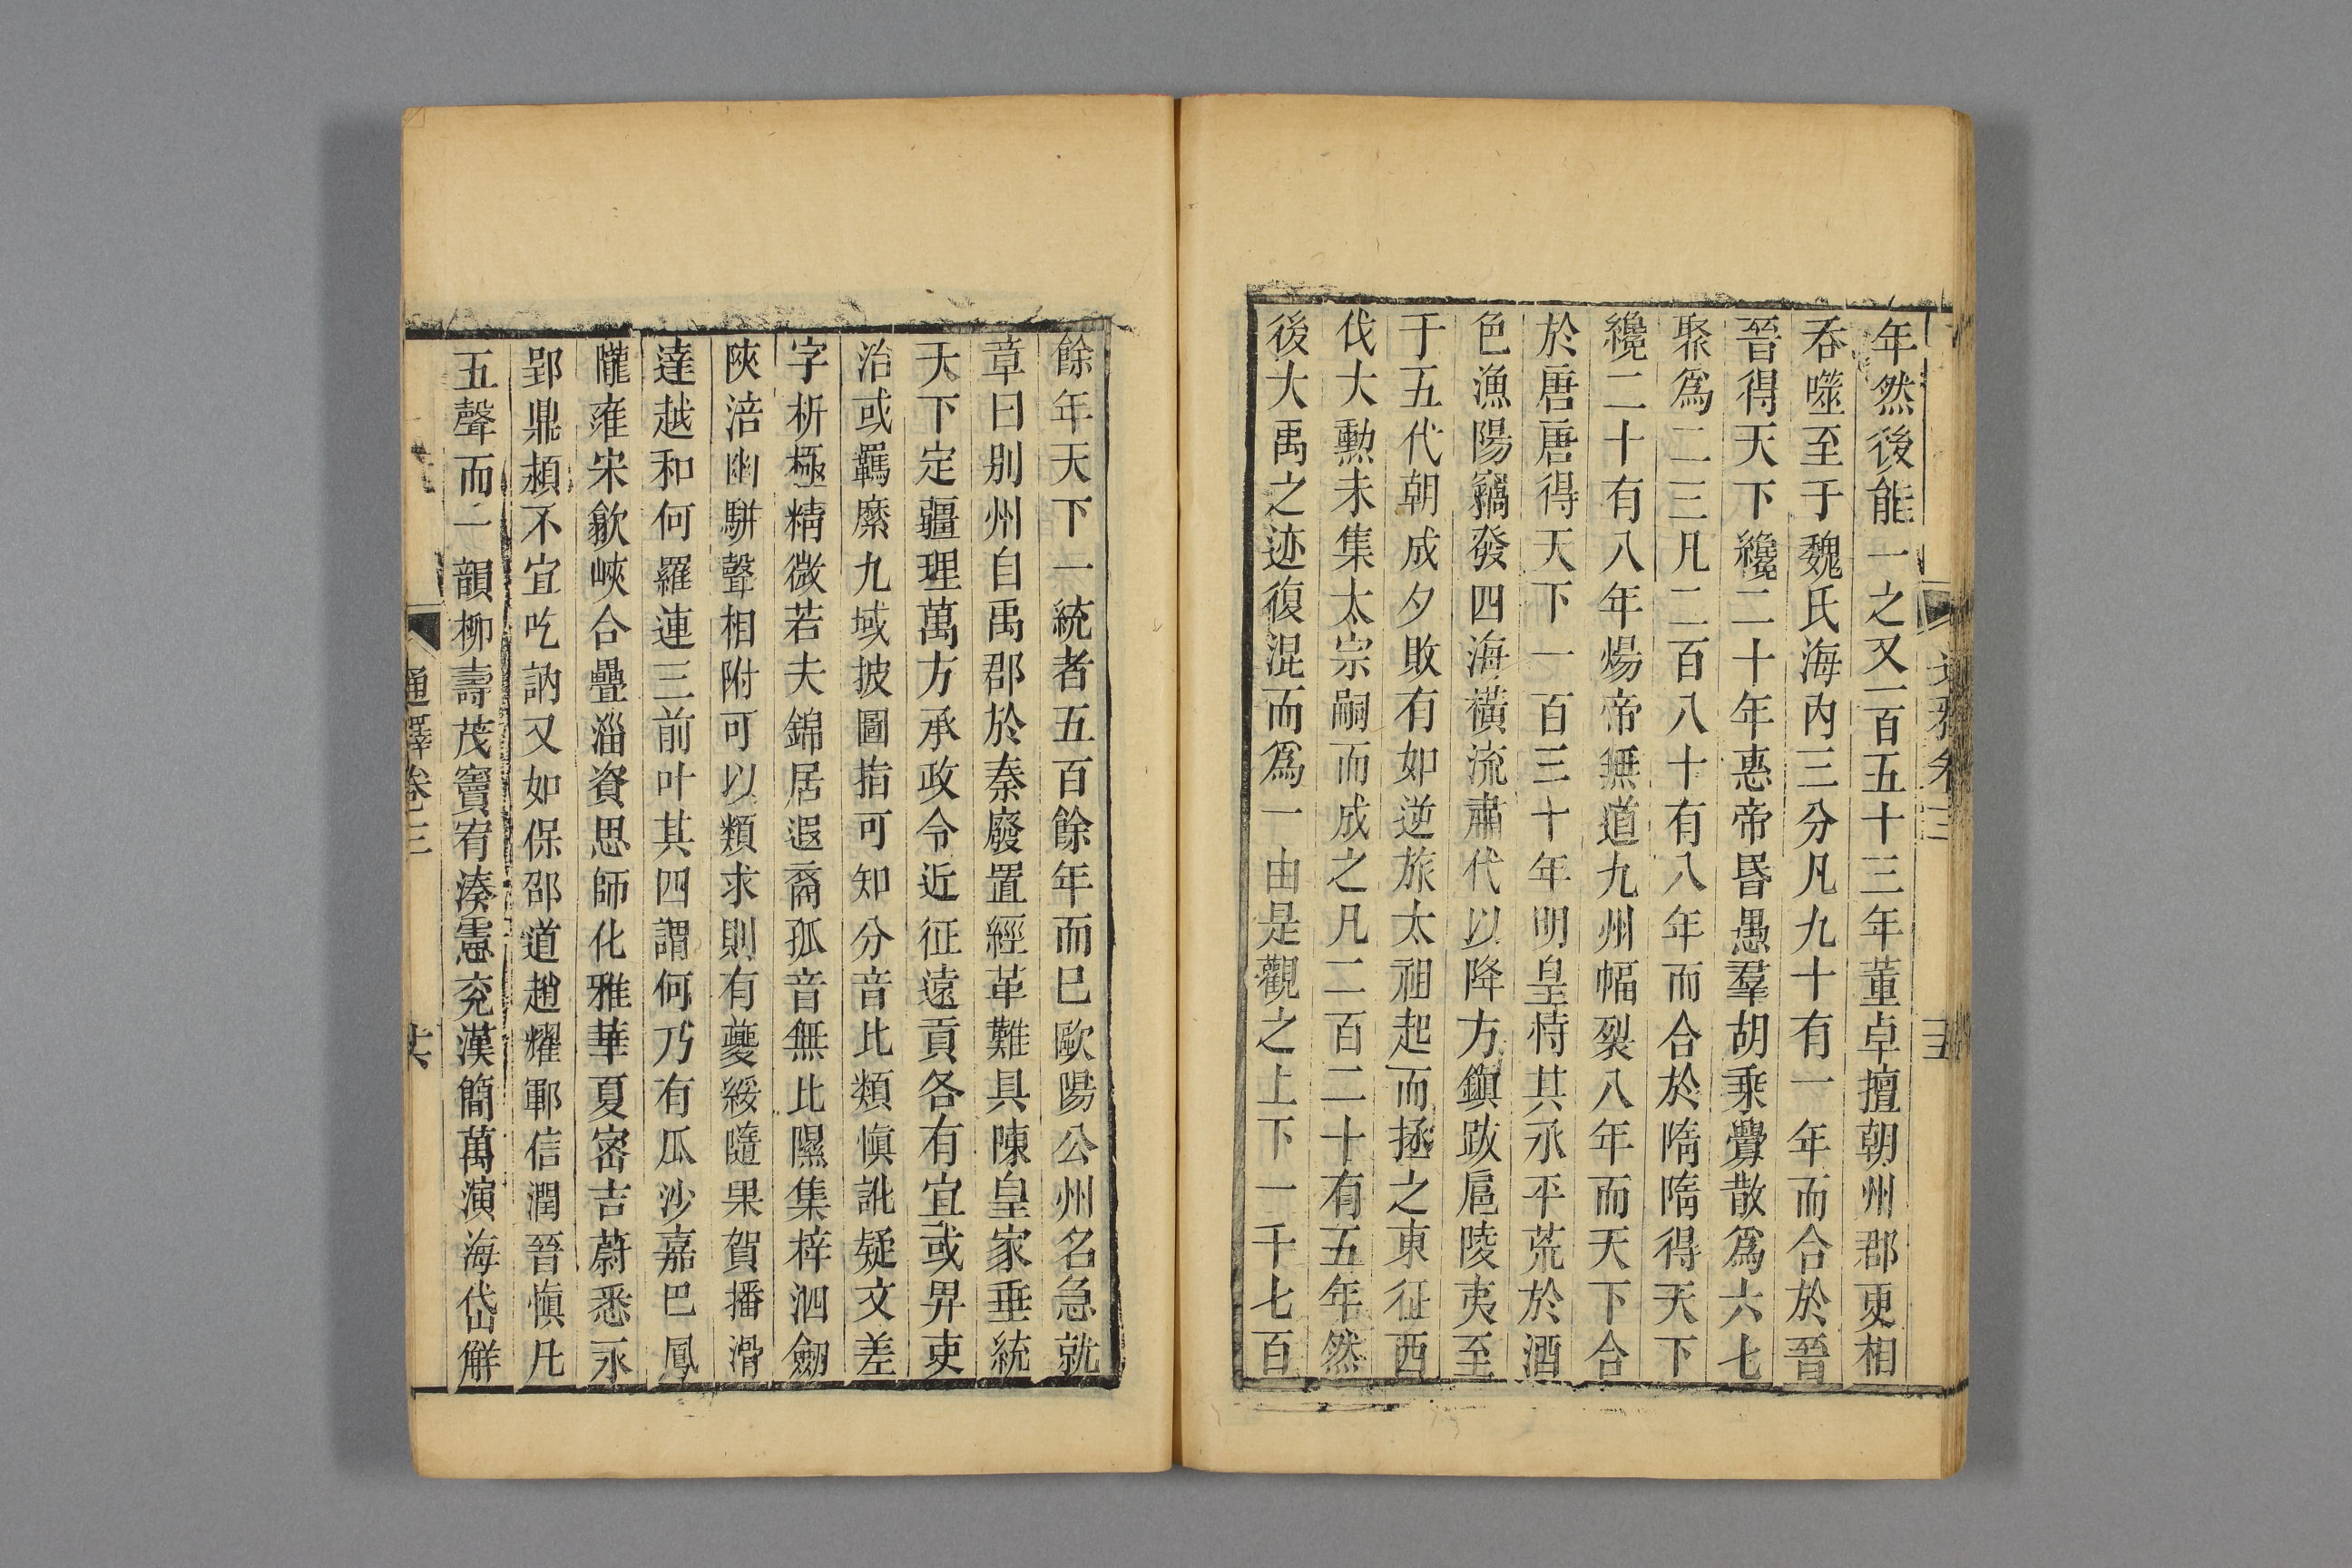 年然後能一之又二百五十三年董卓擅朝州郡更相
吞噬至于魏氏海内三分凡九十有一年而合於晉
晉得天下纔二十年惠帝昏愚羣胡乘釁散爲六七
聚爲二三凡二百八十有八年而合於隋隋得天下
纔二十有八年煬帝無道九州幅裂八年而天下合
於唐唐得天下一百三十年明皇恃其承平荒於酒
色漁陽竊發四海橫流肅代以降方鎭跋扈陵夷至
于五代朝成夕敗有如逆旅太祖起而拯之東征西
伐大勲未集太宗嗣而成之凡二百二十有五年然
後大禹之迹復混而爲一由是觀之上下一千七百
餘年天下一統者五百餘年而已歐陽公州名急就
章曰別州自禹郡於秦廢置經革難具陳皇家垂統
天下定疆理萬方承政令近征遠貢各有宜或畀吏
治或羈縻九域披圖指可知分音比類愼訛疑文差
字析極精微若夫錦居遐裔孤音無比隰集梓泗劒
陝涪幽駢聲相附可以類求則有夔綏隨果賀播滑
達越和何羅連三前叶其四謂何乃有瓜沙嘉巴鳳
隴雍宋歙峽合疊淄資思師化雅華夏密吉蔚悉永
郢鼎潁不宜吃訥又如保邵道趙耀鄆信潤晉愼凡
五聲而一韻柳壽茂竇宥湊憲兖漢簡萬演海岱觧
通釋卷三